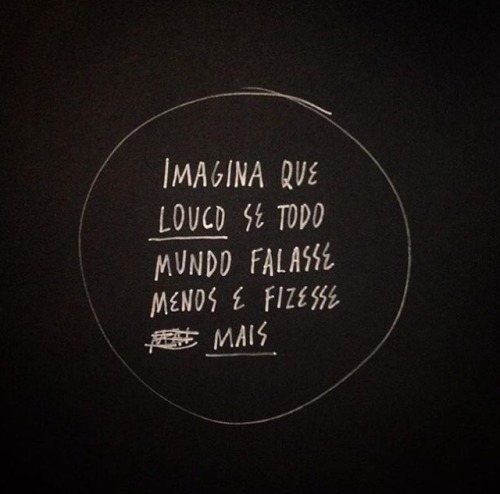 IMAGINA QUE
LOUCO SE TODO
MUNDO FALASSE
MENOS E FIZESSE
MAIS